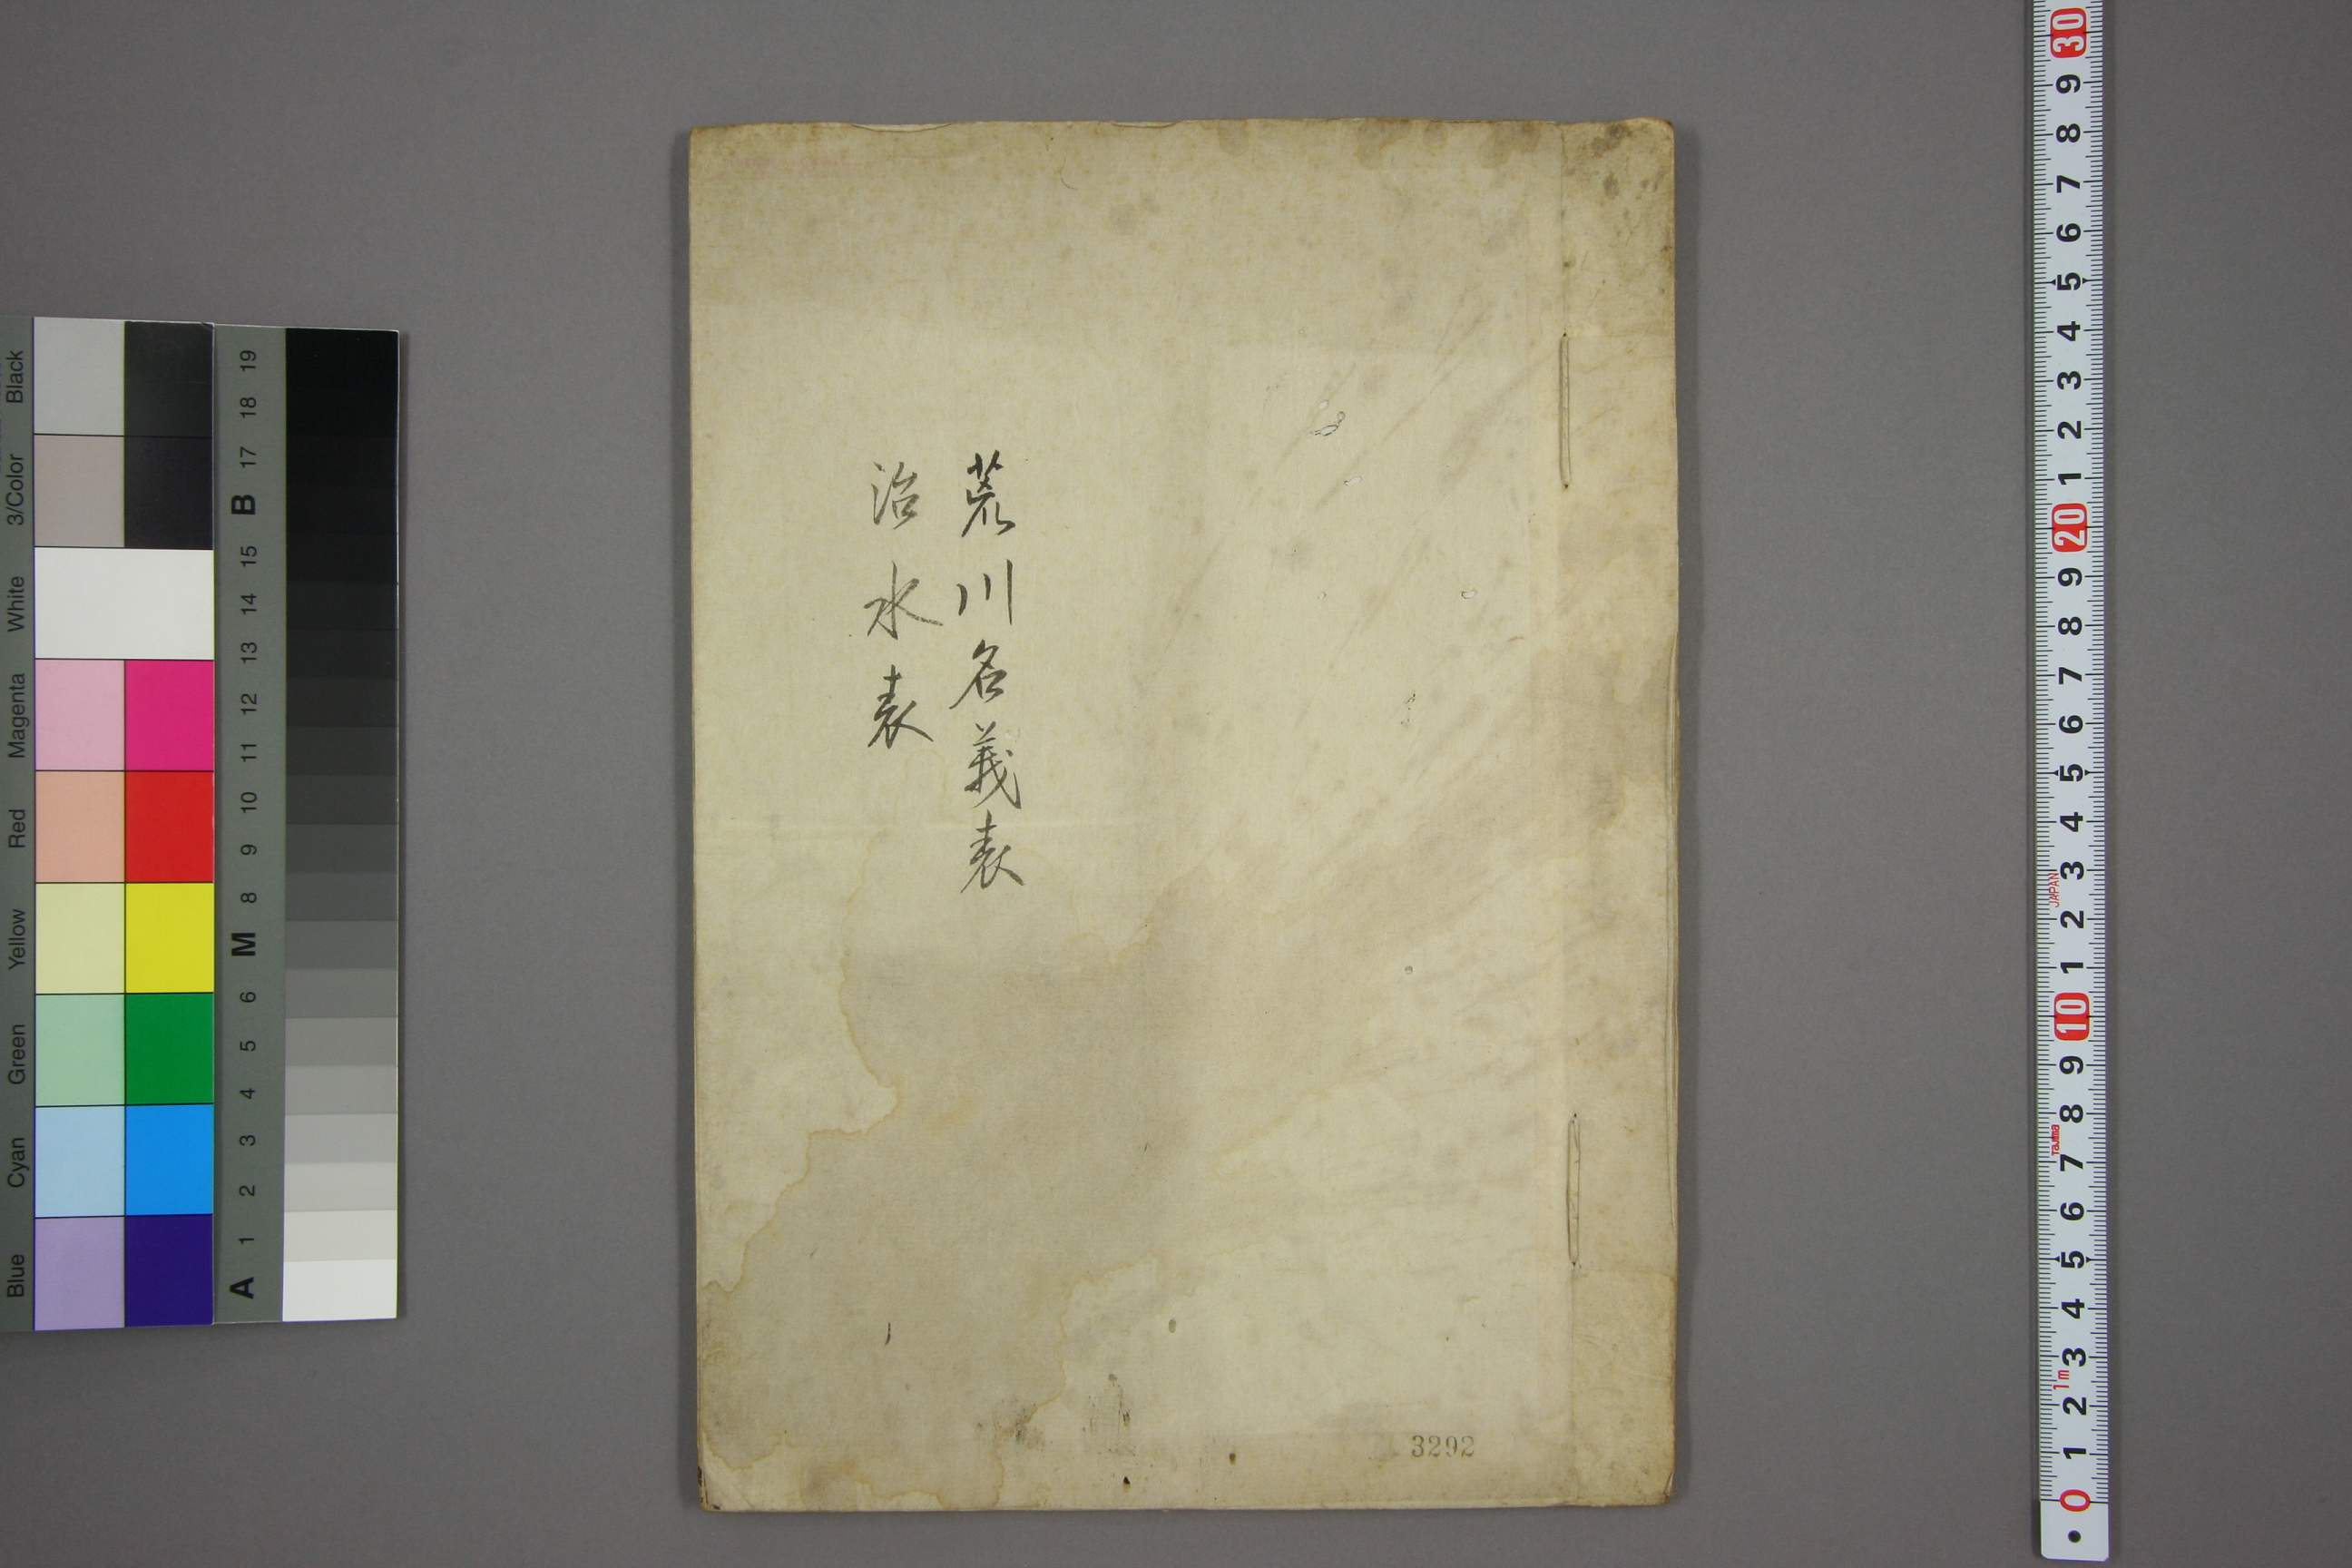 荒川名義表
治水表
3292
Black
3/Color
White
Magenta
Red
Yellow
Green
Cyan
Blue
19
18
17
B
15
14
13
12
11
10
9
8
M
6
5
4
3
2
1
A
30
9
8
7
6
5
4
3
2
1
20
9
8
7
6
5
4
3
JAPAN
2
1
10
9
8
Tajima
7
6
5
4
3
1m
2
1
0